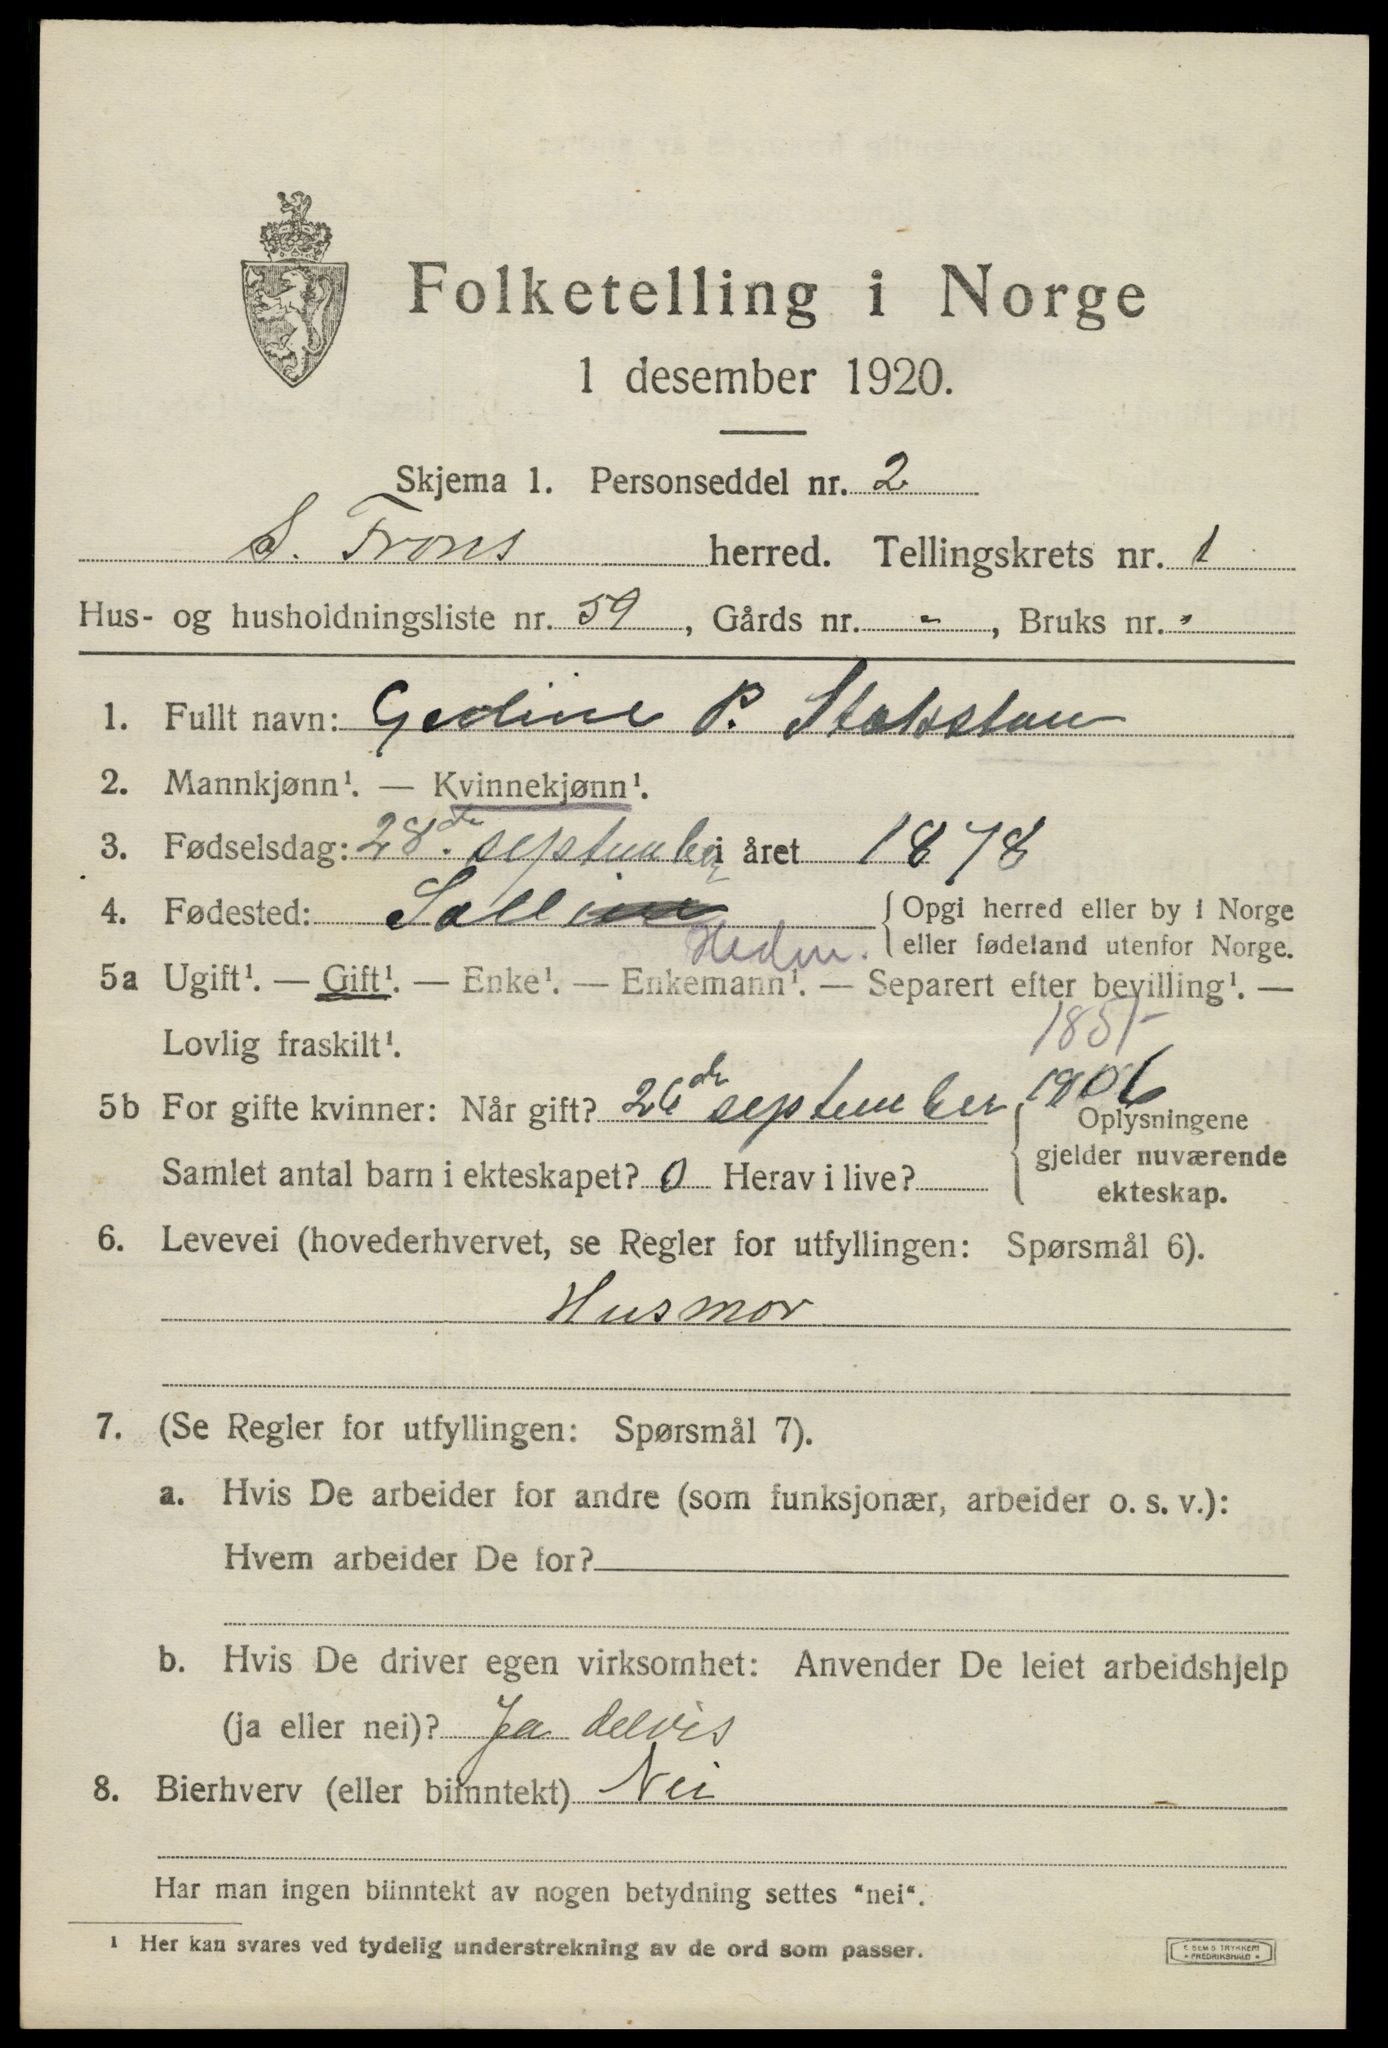 Folketelling i Norge
1 desember 1920.
Skjema 1. Personseddel nr. 2
S. Frons herred. Tellingskrets nr. 1
Hus- og husholdningsliste nr. 59, Gårds nr. -, Bruks nr. -
1. Fullt navn: Gedine P. Stakston
2. Mannkjønn¹. — Kvinnekjønn¹.
3. Fødselsdag: 28de september i året 1878
4. Fødested: Sollien { Opgi herred eller by i Norge
Heden. eller fødeland utenfor Norge.
5a Ugift¹. — Gift¹. — Enke¹. — Enkemann¹. — Separert efter bevilling¹. —
Lovlig fraskilt¹. 185-
5b For gifte kvinner: Når gift? 26de september 1906
Oplysningene
gjelder nuværende
Samlet antal barn i ekteskapet? 0 Herav i live?
ekteskap.
6. Levevei (hovederhvervet, se Regler for utfyllingen: Spørsmål 6).
Husmor
7. (Se Regler for utfyllingen: Spørsmål 7).
a. Hvis De arbeider for andre (som funksjonær, arbeider o. s. v.):
Hvem arbeider De for?
b. Hvis De driver egen virksomhet: Anvender De leiet arbeidshjelp
(ja eller nei)? Ja delvis
8. Bierhverv (eller biinntekt) Nei
Har man ingen biinntekt av nogen betydning settes "nei".
¹ Her kan svares ved tydelig understrekning av de ord som passer.
E. SEM S. TRYKKERI
FREDRIKSHALD